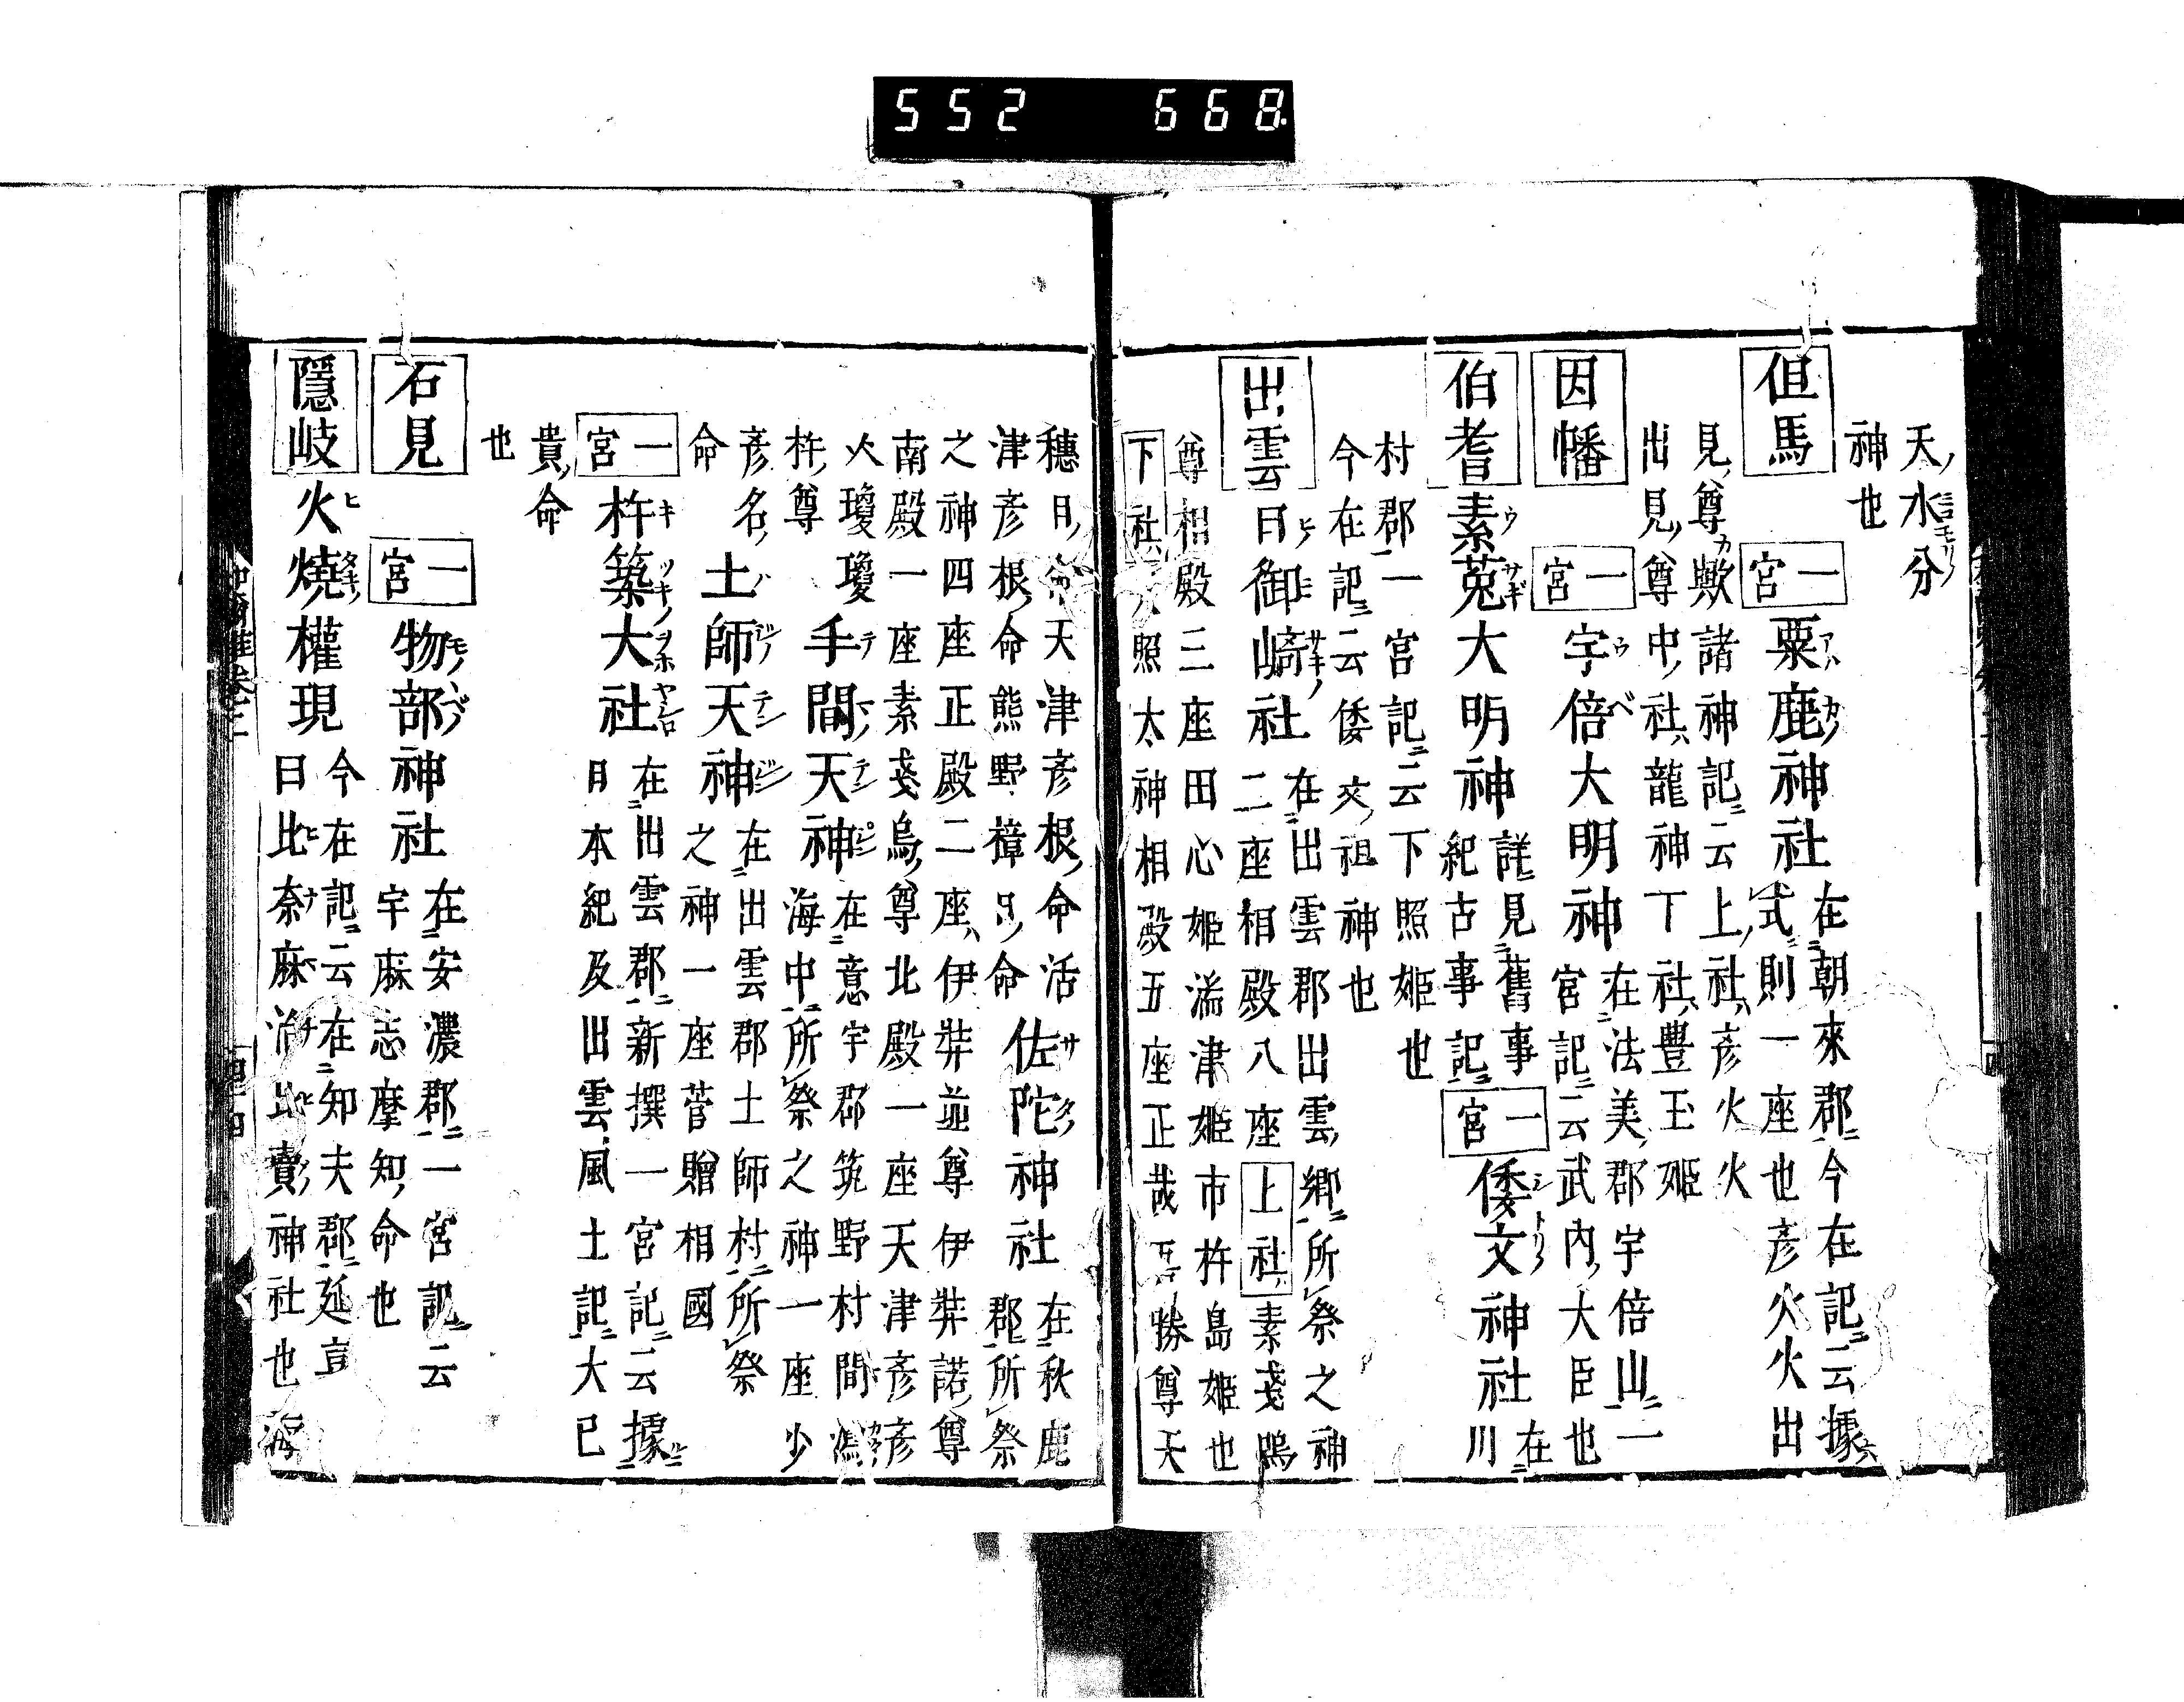 552 668
天水分
神也
但馬 一宮 粟鹿神社 在朝來郡今在記云據
式則一座也彥火火出
見尊歟諸神記云上社彥火火
出見尊中社龍神丁社豐玉姬
因幡 一宮 宇倍大明神 在法美郡宇倍山一
宮記云武内大臣也
伯耆 素菟大明神 詳見舊事
紀古事記 一宮 倭文神社 在
川
村郡一宮記云下照姬也
今在記云倭文祖神也
出雲 日御崎社 在出雲郡出雲鄉所祭之神
二座相殿八座 上社 素戔嗚
尊相殿三座田心姬湍津姬市杵島姬也
下社 照太神相殿五座正哉吾勝尊天
穗日命天津彥根命活
津彥根命熊野櫲 命 佐陀神社 在秋鹿
郡所祭
之神四座正殿二座伊弉並尊伊弉諾尊
南殿一座素戔烏尊北殿一座天津彥彥
火瓊瓊
杵尊 手間天神 在意宇郡筑野村間
海中所祭之神一座少
彥名
命 土師天神 在出雲郡土師村所祭
之神一座菅贈相國
一宮 杵築大社 在出雲郡新撰一宮記云據
日本紀及出雲風土記大已
貴命
也
石見 一宮 物部神社 在安濃郡一宮記云
宇麻志摩知命也
隱岐 火燒權現 今在記云在知夫郡延喜
曰比奈麻治比賣神社也